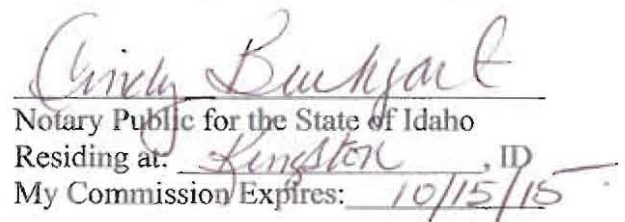 Cindy
Notary Public for the State of Idaho
Residing at: Kingston, ID
My Commission Expires: 10/15/15